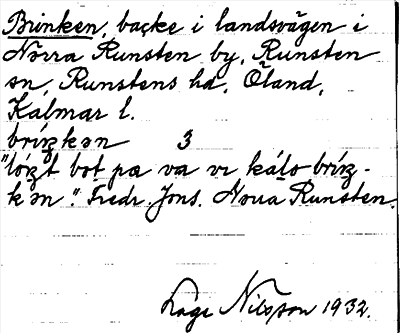 Brinken, backe i landsvägen i
Norra Runsten by, Runsten
sn, Runstens hd, Öland,
Kalmar l.
bríŋkən 3
"lóŋt bot pa va vɩ kálo bríŋ-
kən". Fredr. Jons. Norra Runsten.
Låge Nilsson 1932.